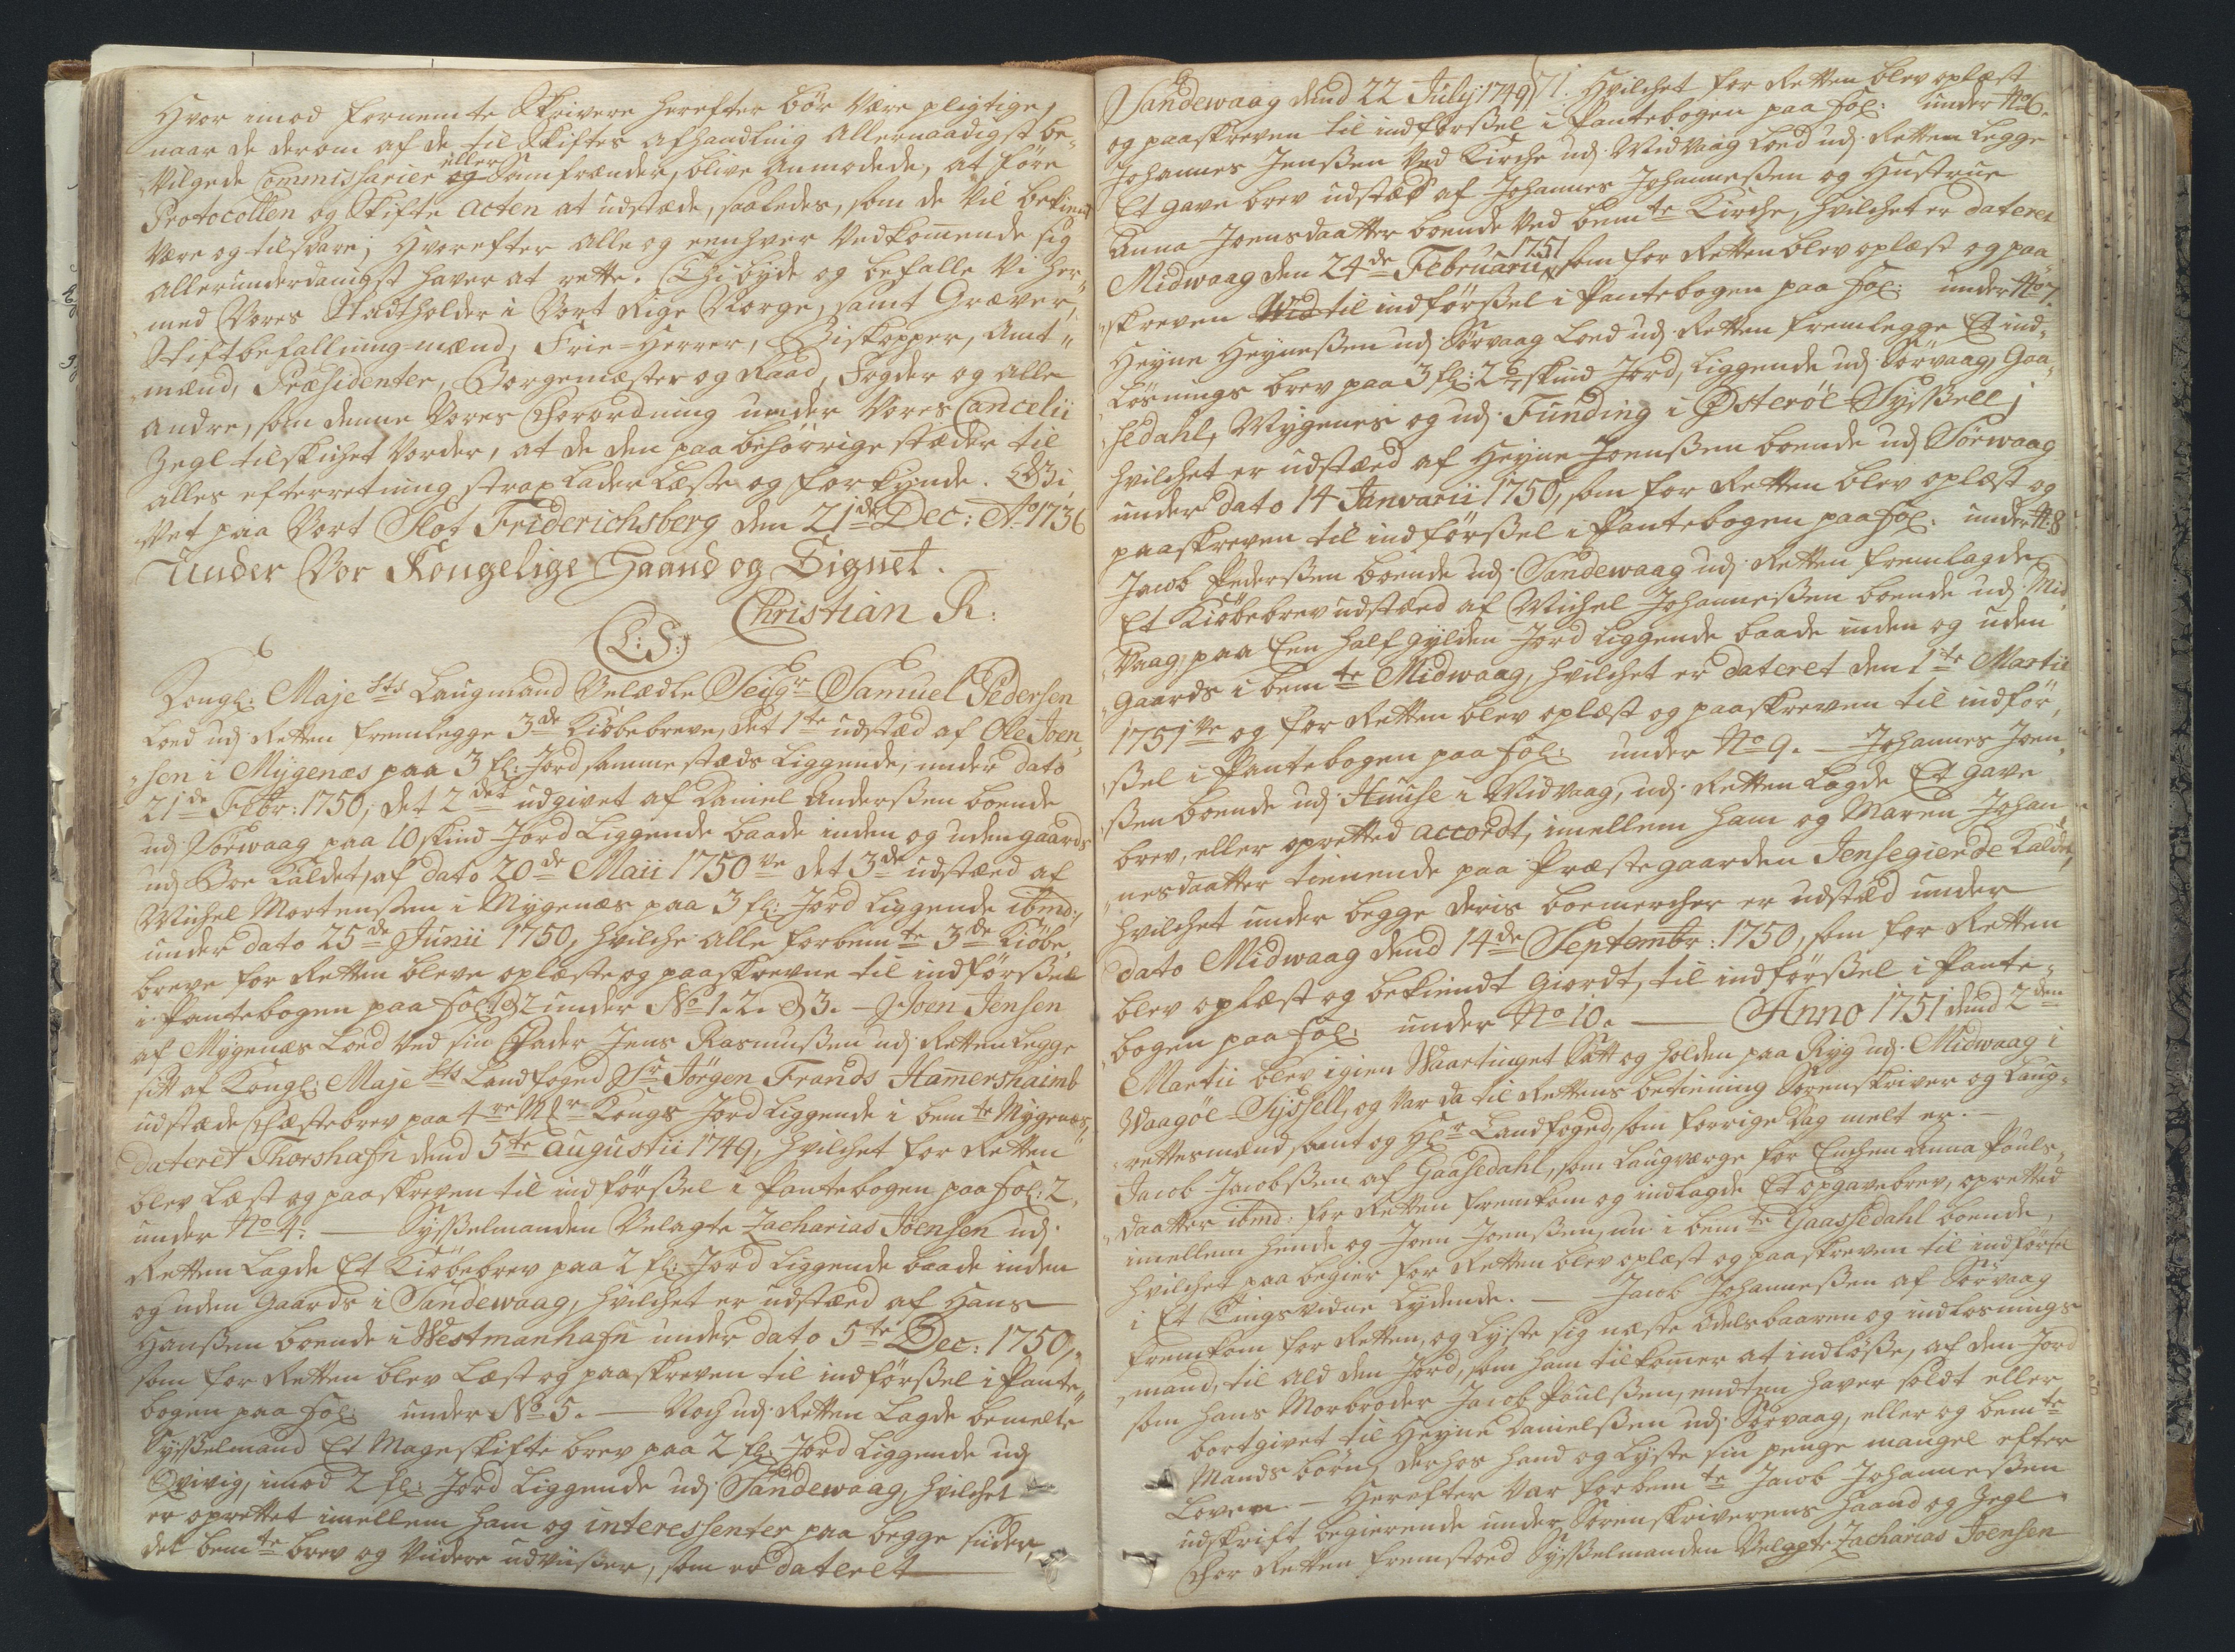 Hvor imod fornemte Skrivere herefter bör være pligtige,
naar de derom af de til Skiftes afhandling Allernaadigst be-
vilgede Commissarier eller Samfrænder, blive Anmodede, at före
Protocollen og Skifte Acten at udstæde, saaledes, som de vil bekiendt
være og tilsvare; Hvorefter alle og eenhver Vedkommende sig
allerunderdanigst haver at rette. Thi byde og befalle Vi her-
med Vores Stadtholder i Vort Rige Norge, samt Græver,
Stiftbefallning-mænd, Frie-Herrer, Biskopper, Amt-
mænd, Præsidenter, Borgemæster og Raad, Fogder og alle
andre, som denne Vores Forordning under Vores Cancelii
Zegl tilskichet vorder, at de den paa behörrige stæder til
alles efterretning strax lader læse og forkynde. Gi-
vet paa Vort Slot Friderichsberg den 21de Dec: Ao 1736
Under Vor Kongelige Haand og Signet.
Christian R:
(L:S:)
Kongl: Majests Laugmand Velædle Seigr Samuel Pedersen
loed udj Retten fremlegge 3de Kiöbebreve, det 1te udstæd af Ole Joen-
sen i Mygenæs paa 3 fl: Jord samme stæds liggende, under dato
21de Febr: 1750, det 2det udgivet af Daniel Andersen boende
udj Sörwaag paa 10 skind Jord liggende baade inden og uden gaards
udj Boe kaldet, af dato 20de Maii 1750 det 3de udstæd af
Michel Mortensen i Mygenæs paa 3 fl: Jord liggende ibmd:
under dato 25de Junii 1750, hvilche alle forbemte 3de Kiöbe-
breve for Retten bleve oplæste og paaskrevne til indförsel
i Pantebogen paa fol: 1 & 2 under No 1. 2. & 3. - Joen Jensen
af Mygenæs loed ved sin Fader Jens Rasmussen udj Retten legge
sit af Kongl: Majests Landfoged Sr Jörgen Frands Hamershaimb
udstæde Fæstebrev paa 4re Mr Kongs Jord liggende i bemte Mygenæs,
dateret Thorshafn dend 5te augustii 1749, hvilchet for Retten
blev læst og paaskreven til indförsel i Pantebogen paa fol: 2
under No 4. — Sysselmanden Velagte Zacharias Joensen udj
Retten lagde Et Kiöbebrev paa 2 fl: Jord liggende baade inden
og uden Gaards i Sandewaag, hvilchet er udstæd af Hans
Hansen boende i Westmanhafn under dato 5te Dec: 1750,
som for Retten blev læst og paaskreven til indförsel i Pante-
bogen paa fol: under No 5. — Noch udj Retten lagde bemelte
Sysselmand Et Mageskifte brev paa 2 fl: Jord liggende udj
Qvivig, imod 2 fl: Jord liggende udj Sandewaag, hvilchet
er oprettet imellem ham og interessenter paa begge sider,
det bemte brev og videre udviser, som er dateret
Sandewaag dend 22 July 1749 71. Hvilchet for Retten blev oplæst
og paaskreven til indförsel i Pantebogen paa fol: under No 6.
Johannes Jensen Ved Kirche udj Midvaag loed udj Retten legge
Et gave brev udstæd af Johannes Johannessen og Hustrue
Anna Joensdaatter boende Ved bemte Kirche, hvilchet er dateret
Midwaag den 24de Februarii 1751 som for Retten blev oplæst og paa-
skreven til indförsel i Pantebogen paa fol: under No 7.
Heyne Heynesen udj Sörvaag loed udj Retten fremlegge Et ind-
lösnings brev paa 3 fl: 2 skind Jord, liggende udj Sörvaag, Gaa-
sedahl, Mygenes og udj Funding i Österöe Syssell;
hvilchet er udstæd af Heyne Joensen boende udj Sörwaag
under dato 14 Janvarii 1750, som for Retten blev oplæst og
paaskreven til indförsel i Pantebogen paa fol: under No 8
Jacob Pedersen boende udj Sandewaag udj Retten fremlagde
Et Kiöbebrev udstæd af Michel Johannesen boende udj Mid-
vaag, paa Een half gylden Jord liggende baade inden og uden
Gaards i bemte Midwaag, hvilchet er dateret den 1te Martii
1751 og for Retten blev oplæst og paaskreven til indför-
sel i Pantebogen paa fol: under No 9. — Johannes Joen-
sen boende udj Huuse i Midvaag, udj Retten lagde Et gave
brev, eller oprettet accordt, imellem ham og Maren Johan-
nesdaatter tienende paa Præstegaarden Jensegierde kaldet,
hvilchet under begge deris boemercher er udstæd under
dato Midwaag dend 14de Septembr: 1750, som for Retten
blev oplæst og bekiendt giordt, til indförsel i Pante-
bogen paa fol: under No 10. — Anno 1751 dend 2den
Martii blev igien Waartinget Satt og holden paa Ryg udj Midwaag i
Waagöe-Syssell, og var da til Rettens betiening Sorenskriver og Laug-
rettesmænd, samt og Landfoged, som forrige dag melt er. -
Jacob Jacobsen af Gaasedahl, som laugværge for Enchen Anna Pouls-
daatter ibmd: for Retten fremkom og indlagde Et opgavebrev, oprettet
imellem hende og Joen Joensen, nu i bemte Gaassedahl boende,
hvilchet paa begier for Retten blev oplæst og paaskreven til indförsel
i Et Tingsvidne lydende. — Jacob Johannesen af Sörvaag
fremkom for Retten, og lyste sig næste Odelsbaaren og indlösnings
mand, til ald den Jord, som ham tilkomer at indlöse, af den Jord
som hans Morbroder Jacob Poulsen, endten haver soldt eller
bortgivet til Heyne Danielsen udj Sörvaag, eller og bemte
Mands börn, derhos hand og lyste sin penge mangel efter
Loven. — Herefter var forbemte Jacob Johannesen
udskrift begierende under Sorenskriverens Haand og Zegl
For Retten fremstoed Sysselmanden Velagte Zacharias Joensen